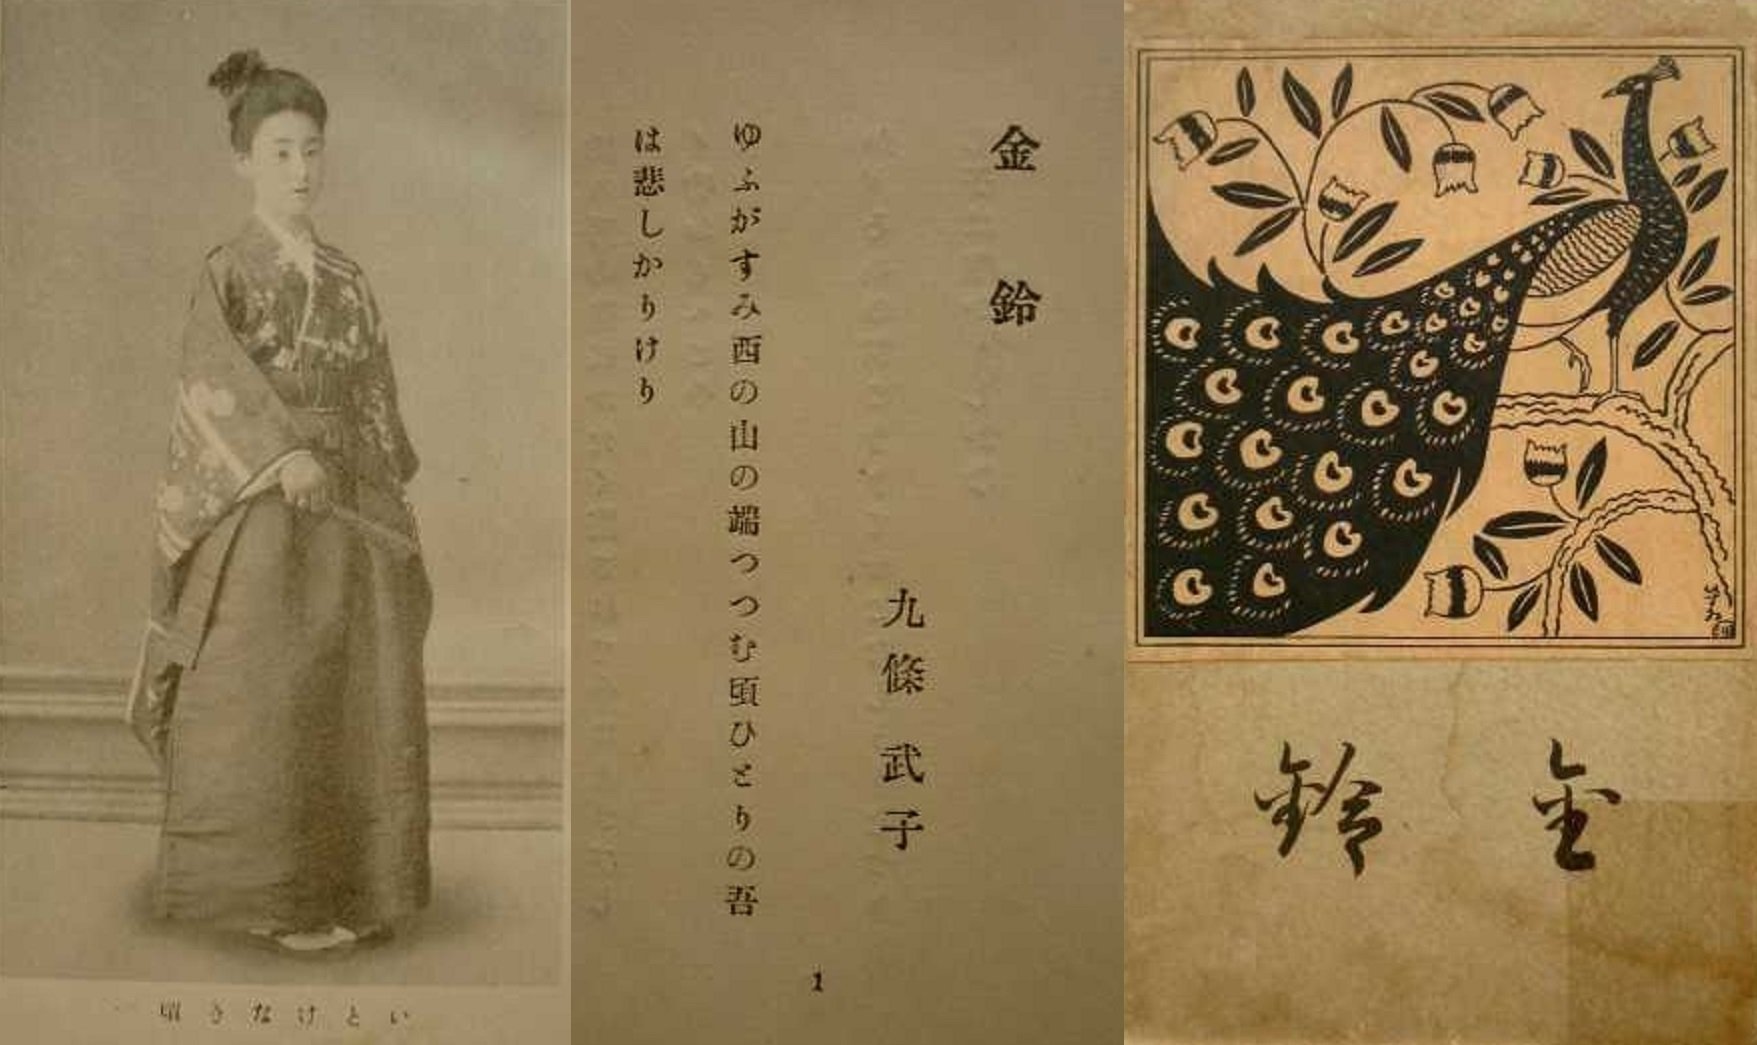 いとけなき頃
金鈴
九條武子
ゆふがすみ西の山の端つつむ頃ひとりの吾
は悲しかりけり
1
金鈴